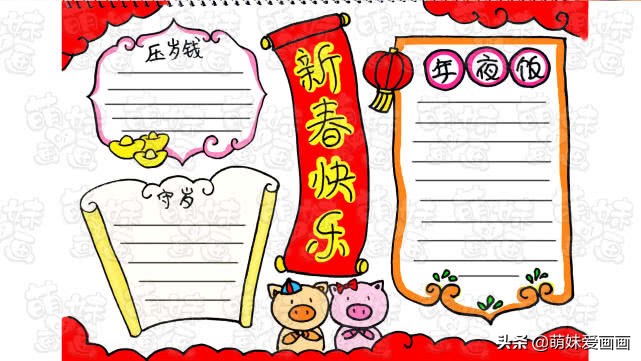 压岁钱
守岁
新春快乐
年夜饭
头条 @萌妹爱画画
萌妹画画